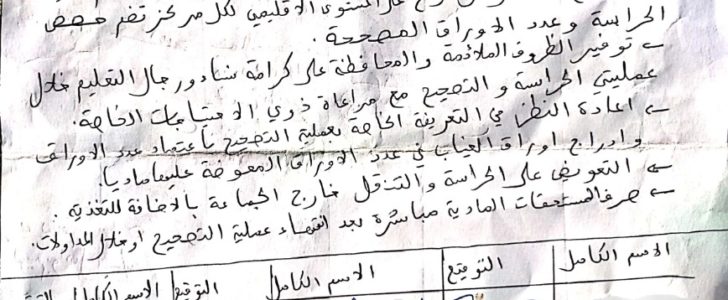 على المستوى الاقليمي لكل مركز تضم حصص
الحراسة وعدد الاوراق المصححة.
← توفير الظروف الملائمة والمحافظة على كرامة نساء ورجال التعليم خلال
عمليتي الحراسة و التصحيح مع مراعاة ذوي الاحتياجات الخاصة.
← اعادة النظر في التعريفة الخاصة بعملية التصحيح باعتماد عدد الاوراق
و ادراج اوراق الغياب في عدد الاوراق المعوضة عليها ماديا.
← التعويض على الحراسة و التنقل خارج الجماعة بالاضافة للتغذية.
← صرف المستحقات المادية مباشرة بعد انتهاء عملية التصحيح او خلال المداولات.
الاسم الكامل التوقيع الاسم الكامل التوقيع الاسم الكامل